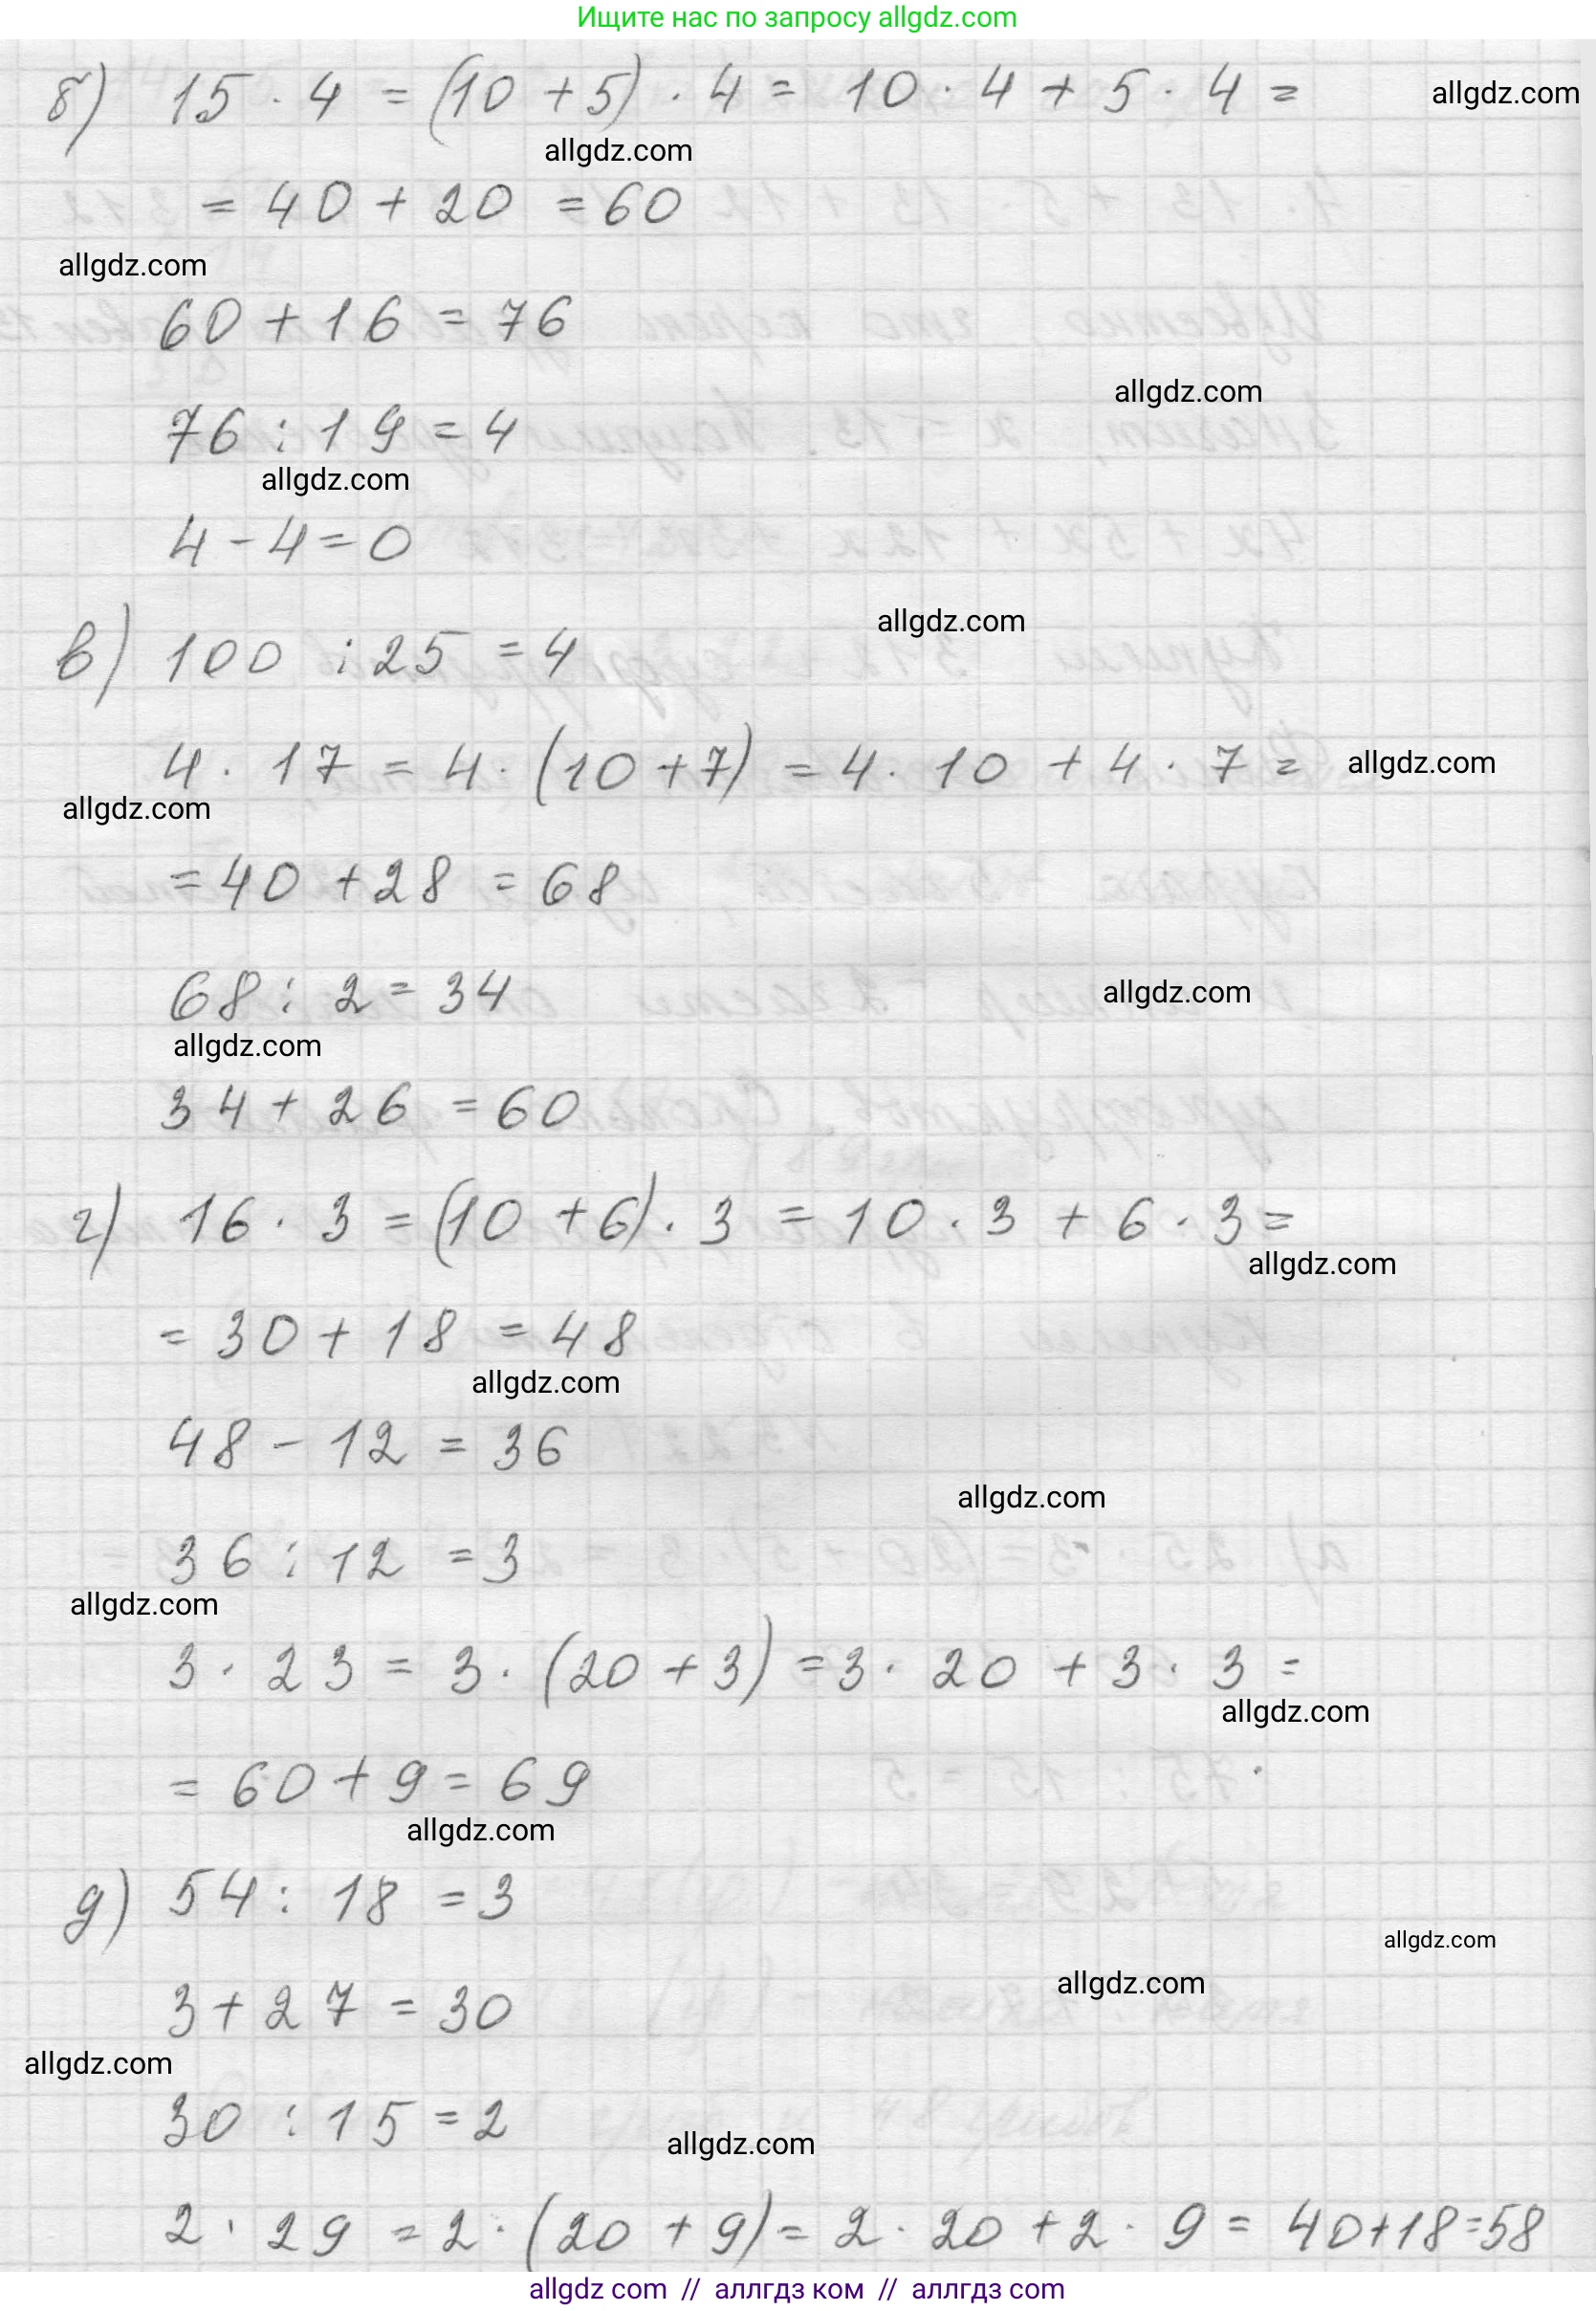 Ищите нас по запросу allgdz.com
б) 15 · 4 = (10 + 5) · 4 = 10 · 4 + 5 · 4 =
allgdz.com
allgdz.com
= 40 + 20 = 60
allgdz.com
60 + 16 = 76
allgdz.com
76 : 19 = 4
allgdz.com
4 - 4 = 0
allgdz.com
в) 100 : 25 = 4
4 · 17 = 4 · (10 + 7) = 4 · 10 + 4 · 7 =
allgdz.com
allgdz.com
= 40 + 28 = 68
68 : 2 = 34
allgdz.com
allgdz.com
34 + 26 = 60
г) 16 · 3 = (10 + 6) · 3 = 10 · 3 + 6 · 3 =
allgdz.com
= 30 + 18 = 48
allgdz.com
48 - 12 = 36
allgdz.com
36 : 12 = 3
allgdz.com
3 · 23 = 3 · (20 + 3) = 3 · 20 + 3 · 3 =
allgdz.com
= 60 + 9 = 69
allgdz.com
д) 54 : 18 = 3
allgdz.com
allgdz.com
3 + 27 = 30
allgdz.com
30 : 15 = 2
allgdz.com
2 · 29 = 2 · (20 + 9) = 2 · 20 + 2 · 9 = 40 + 18 = 58
allgdz com // аллгдз ком // аллгдз com